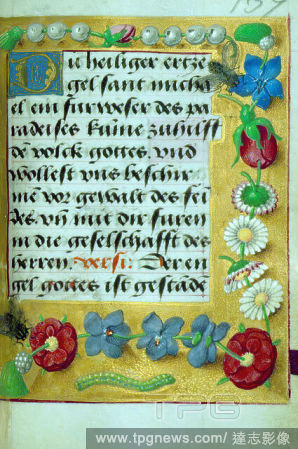 159
Du heiliger ertze
gel sant micha
el ein fürweser des pa
radeises kume zuhilff
de volck gottes. vnd
wollest vns beschir
mē vor gewalt des fein
des. vn̄ mit dir füren
in die geselschafft des
herren. versi: Der en
gel gottes ist gestāde
TPG
www.tpgnews.com／達志影像